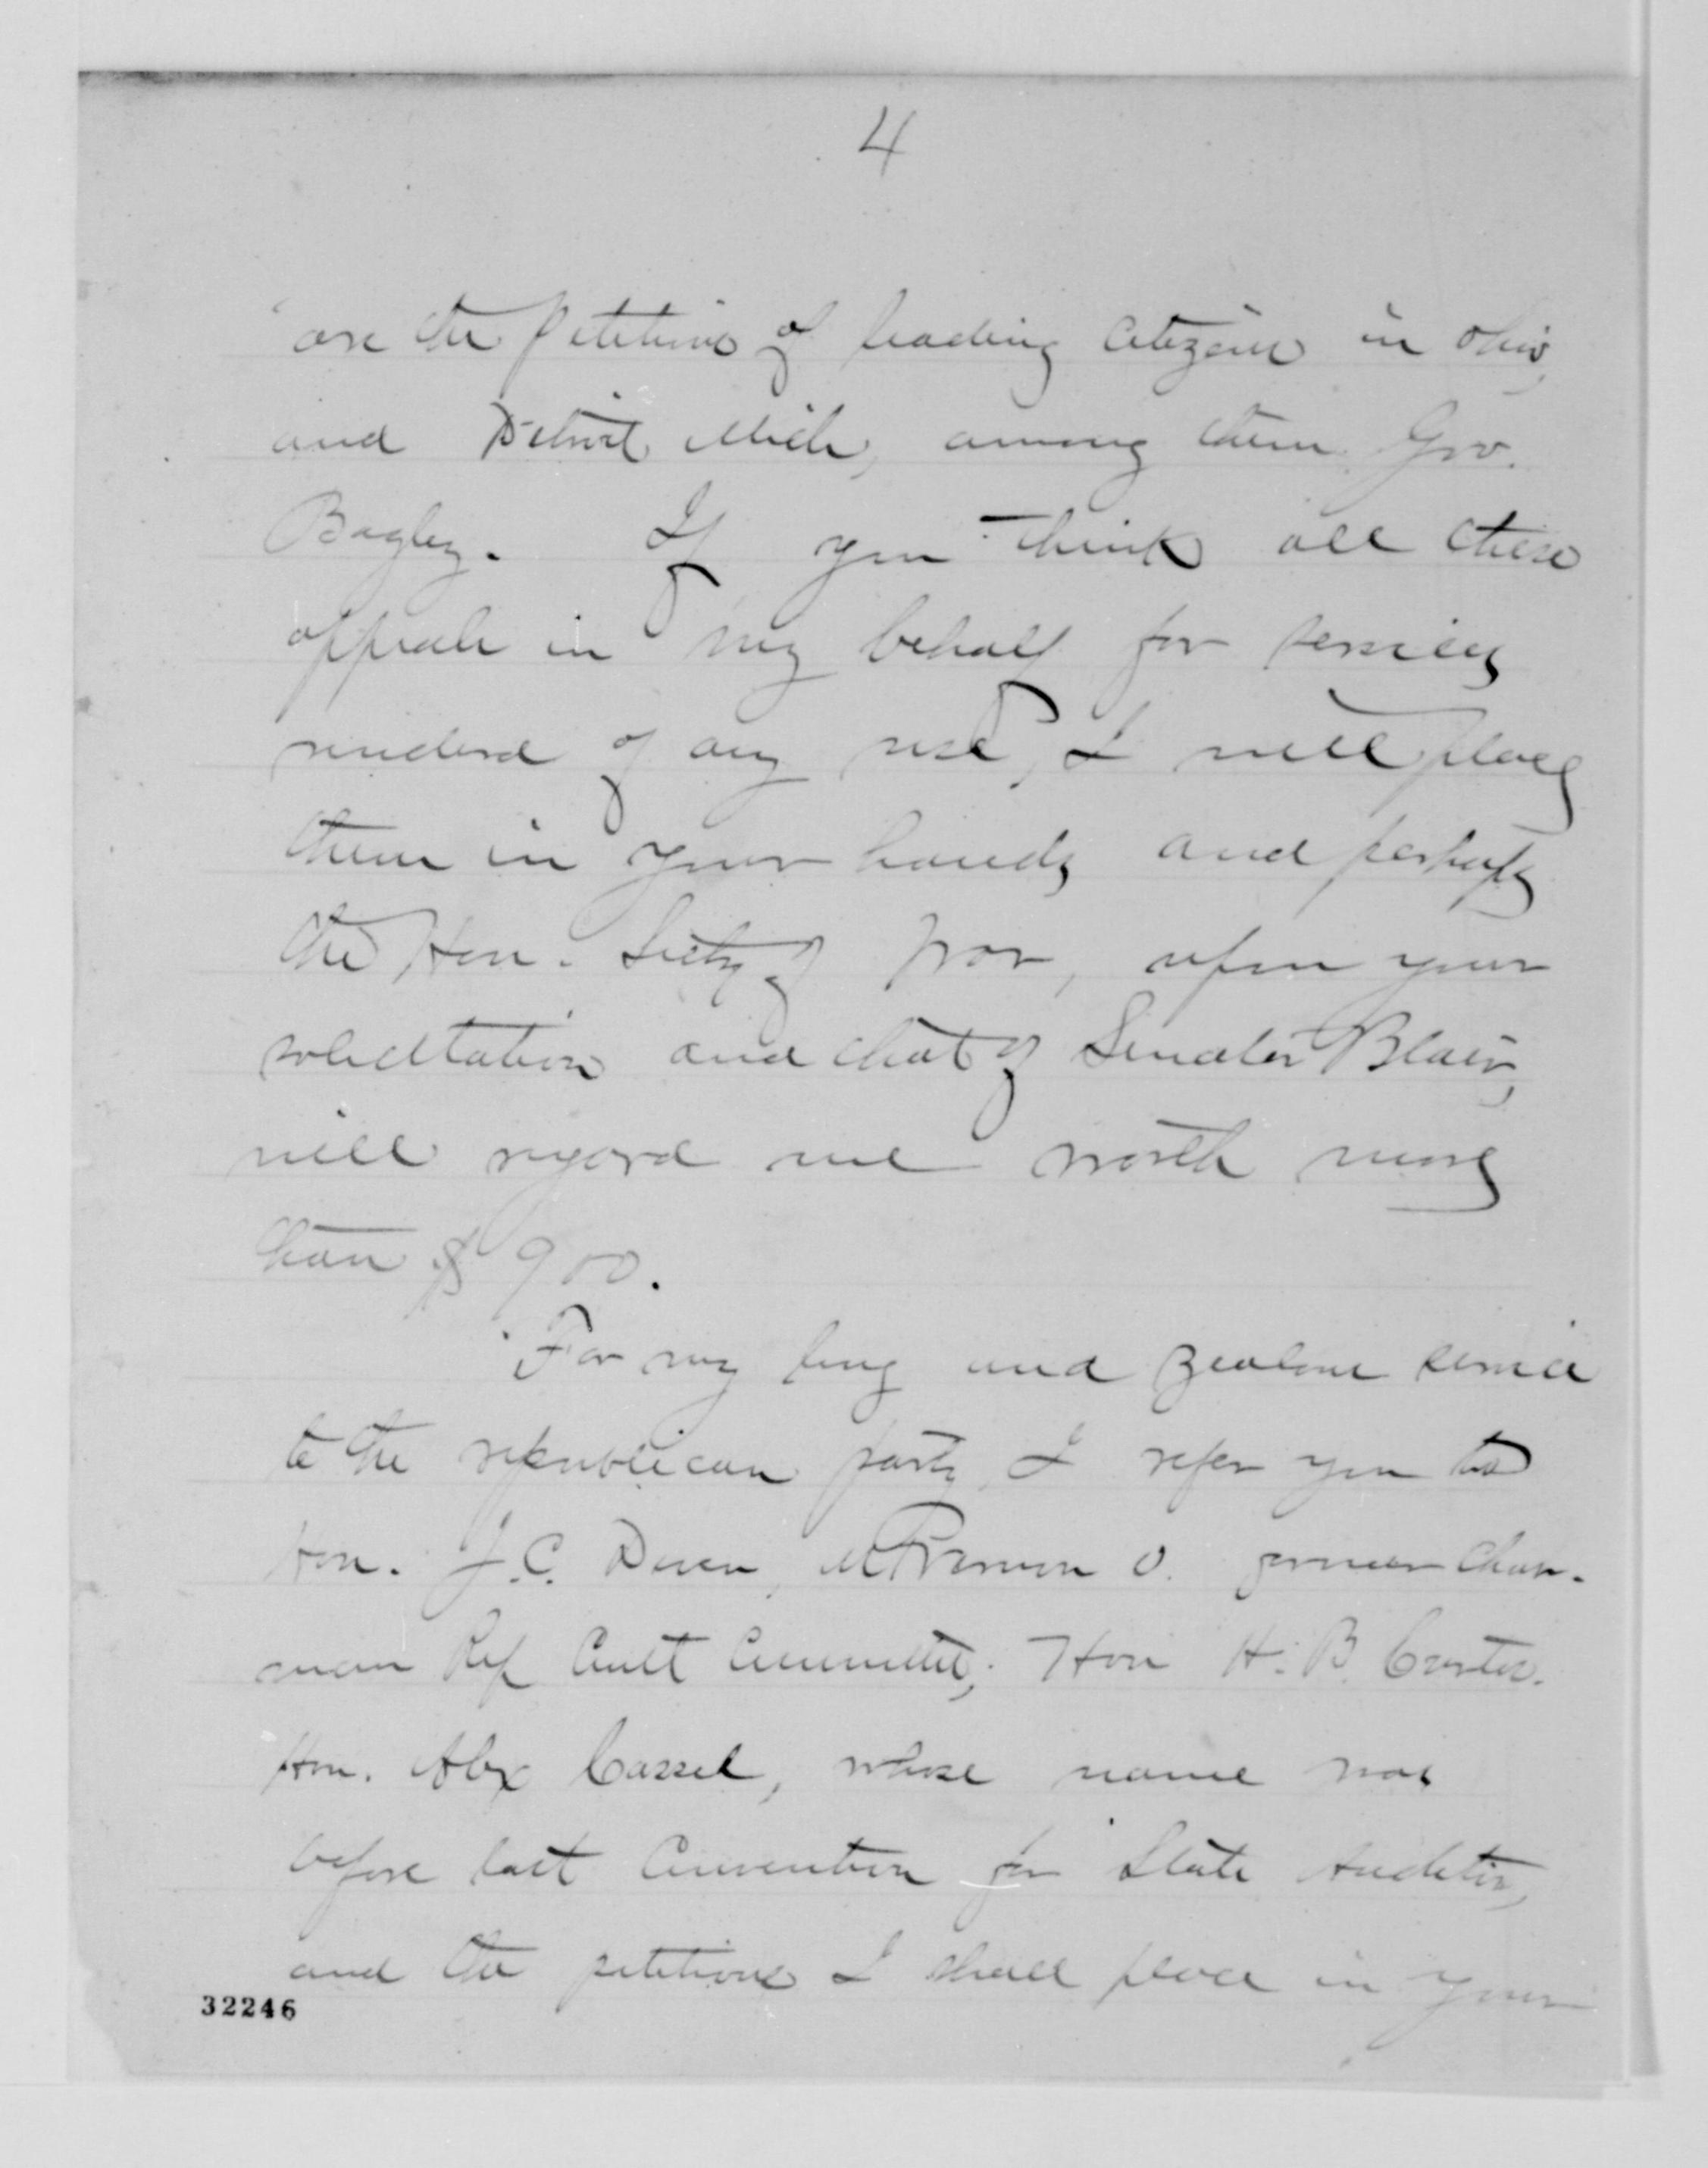 4
are the petitions of leading citizens in Ohio,
and Detroit Mich, among them Gov.
Bagley. If you think all these
appeals in my behalf for services
rendered of any use, I will place
them in your hands and perhaps
the Hon. Secty of War, upon your
solicitation and that of Senator Blair,
will regard me worth more
than $900.
For my long and zealous service
to the republican party, I refer you to
Hon. J. C. Deven, Mt Vernon O. former Chair-
man Rep Cent Committee; Hon H. B. Curtis.
Hon. Alex Cassel, whose name was
before last Convention for State Auditor,
and the petitions I shall place in your
32246